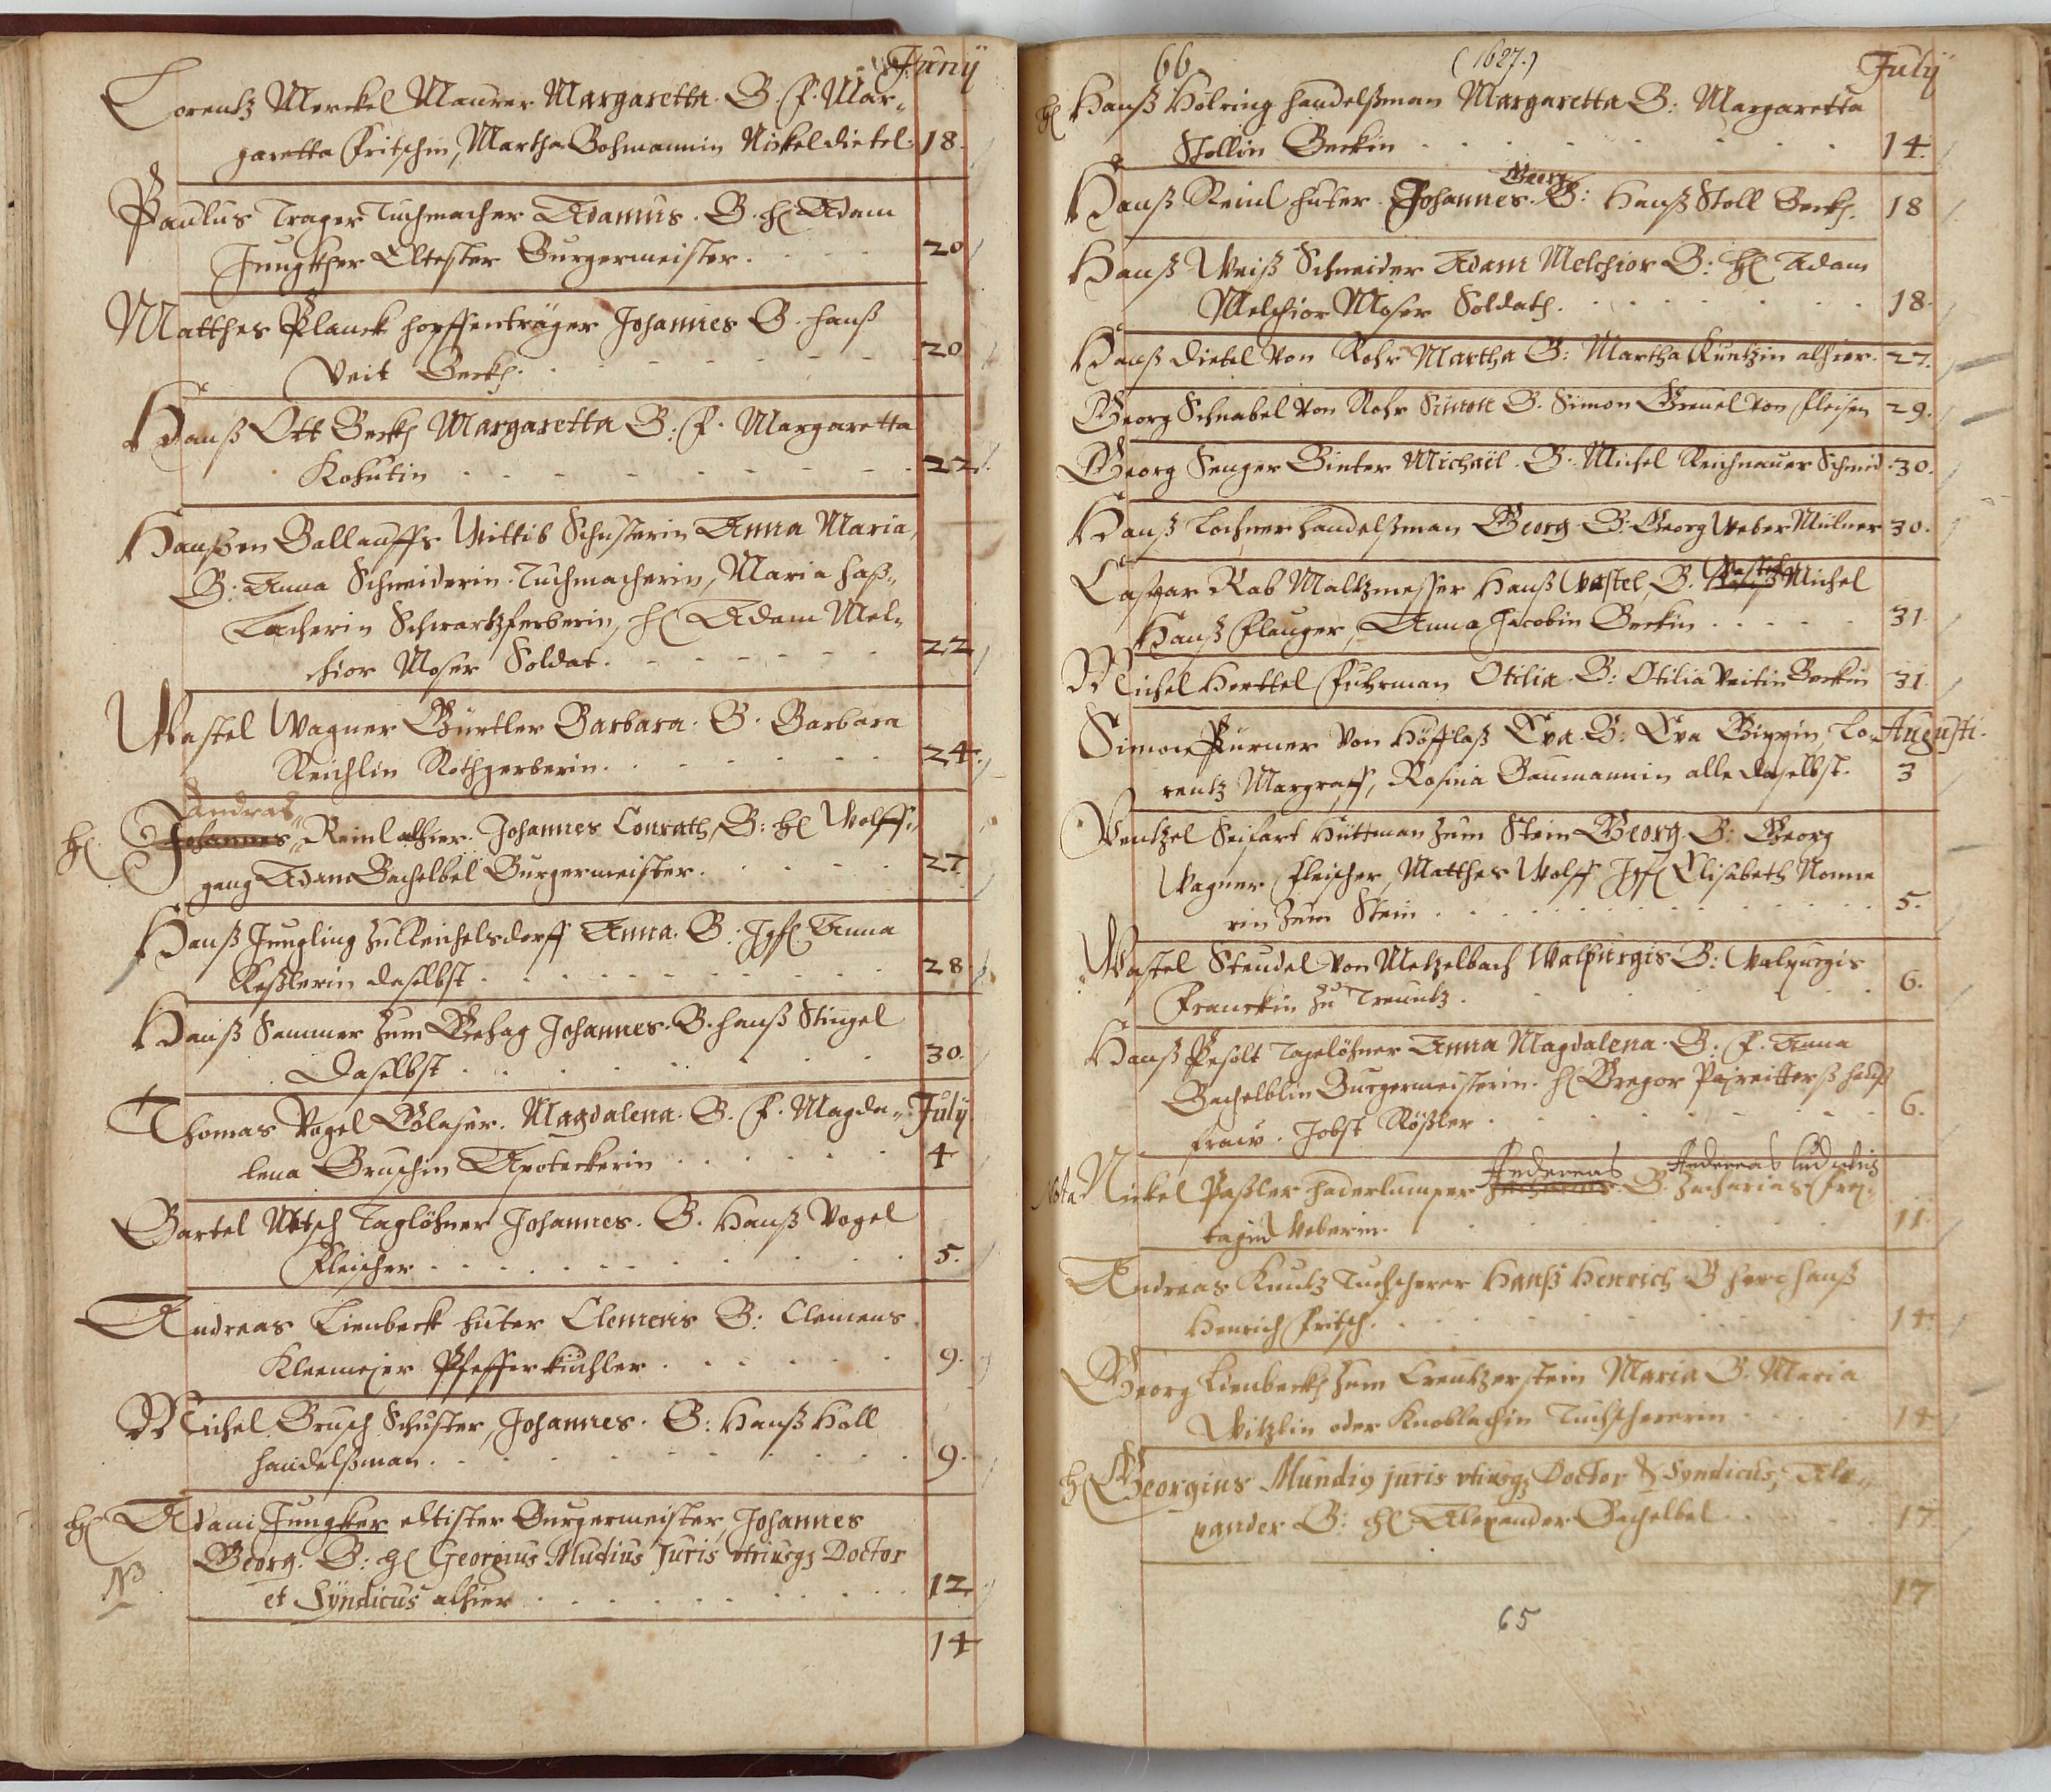 Juny
Lorentz Merckel Maurer Margaretta. G. F. Mar„
garetta Fritschin, Martha Bohmannin Nickel dietel. 18.
Paulus Trager Tuchmacher Adamus. G. H Adam
Jungkher Eltester Burgermeister. 20
Matthes Planck hopffenträger Johannes G. Hanß
Veit Beckh. 20
Hanß Ott Beckh Margaretta G: F. Margaretta
Kohutin 22.
Hanßen Ballauffs Wittib Schusterin Anna Maria,
G: Anna Schneiderin Tuchmacherin, Maria Haß„
Lacherin Schwartzferberin, H Adam Mel„
chior Moser Soldat. 22
Wastel Wagner Gürtler Barbara. G. Barbara
Reichlin Rothgerberin. 24.
Andreas
H Johannes, Reinl alhier. Johannes Conrath, G: H Wolff„
gang Adam Bachelbel Burgermeister. 27
Hanß Jungling zu Reichelsdorff Anna. G: Jgfr Anna
Keßlerin daselbst 28
Hanß Sammer zum Gehag Johannes. G. Hanß Stingel
Daselbst 30.
Thomas Vogel Glaser. Magdalena. G. F. Magda„ July
lena Bruschin Apoteckerin 4
Bartel Taglöhner Johannes. G. Hanß Vogel
Fleischer 5.
Andreas Lienbeck huter Clemens G: Clemens
Kleemejer Pfefferküchler 9.
Michel Brusch Schuster, Johannes. G: Hanß Holl
handelßman. 9.
H Adam Jungker eltister Burgermeister, Johannes
Georg. G: H Georgius Mutius Juris vtriusq Doctor
NB et Syndicus alhier 12
14
66 (1627.) July
H Hanß Hölring handelßman Margaretta G: Margaretta
Stollin Beckin 14.
Georg
Hanß Reinl huter. Johannes. G: Hanß Stoll Beckh. 18
Hanß Weiß Schneider Adam Melchior G: H Adam
Melchior Moser Soldath. 18.
Hanß Dietel von Rohr Martha G: Martha Küntzin alhier. 27.
Georg Schnabel von Rohr Simon G. Simon Greuel von Fleisen 29.
Georg Senger Binter Michaël. G: Michel Reichnauer Schmid 30.
Hanß Lochner handelßman Georg G: Georg Weber Mülner 30.
Caspar Rab Maltzmesser Hanß Wastel, G. Wastel Michel
Hanß Pflauger, Anna Jacobin Beckin 31.
Michel Herttel Fuhrman Otilia. G: Otilia Veitin Beckin 31.
Simon Purner von Höflaß Eva. G: Eva Gippin, Lo„ Augusti.
rentz Margraff, Rosina Baumannin alle daselbst. 3
Wentzel Seifart Huttman zum Stein Georg. G: Georg
Wagner Fleischer, Matthes Wolff Jgfr Elisabeth Nonne
rin zum Stein 5.
Wastel Steudel von Metzelbach Walpurgis G: Walpurgis
Franckin zu Treunitz. 6.
Hanß Pesolt Tagelöhner Anna Magdalena. G. F. Anna
Bachelblin Burgermeisterin. H Gregor hauß
fraw. Jobst Rößler. 6.
Andereas Andereas Ludwich
Nota Nickel Paßler haderlumper Zacharias. G. Zacharias Frey„
tagin Weberin. 11.
Andreas Kuntz Tuchscherer Hanß Henrich G Hanß
Henrich Fritsch. 14.
Georg Lienbeckh zum Creutzerstein Maria G. Maria
Witzlin oder Knoblachin Tuchschererin 14
H Georgius Mundiq juris vtriusq Doctor & Syndicus, Ale„
xander G: H Alexander Bachelbel 17
17
65